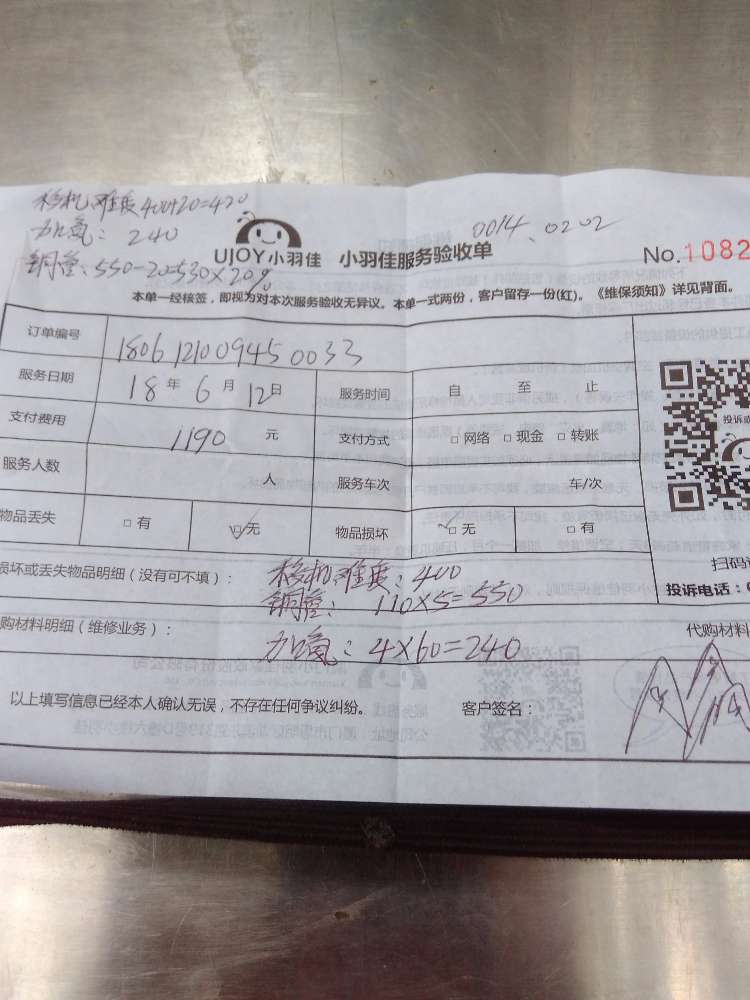 移机难度400+20=420
加氟：240
铜管：550-20=530×20%
0014、0202
UJOY小羽佳 小羽佳服务验收单
No.1082
本单一经核签，即视为对本次服务验收无异议。本单一式两份，客户留存一份(红)。《维保须知》详见背面。
订单编号 1806121009450033
服务日期 18年6月12日 服务时间 自 至 止
支付费用 1190元 支付方式 □网络 □现金 □转账
服务人数 人 服务车次 车/次
物品丢失 □有 ☑无 物品损坏 ☑无 □有
投诉
扫码
投诉电话：
损坏或丢失物品明细（没有可不填）： 移机难度：400
铜管：110×5=550
购材料明细（维修业务）： 加氟：4×60=240
代购材料
以上填写信息已经本人确认无误，不存在任何争议纠纷。 客户签名：